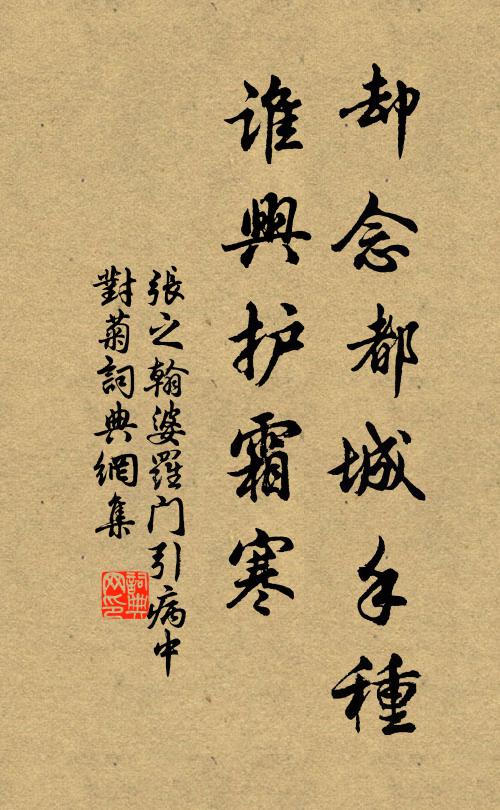 却念都城手種
誰興护霜寒
張之翰婆羅门引病中
對菊詞典網集
詞典網印